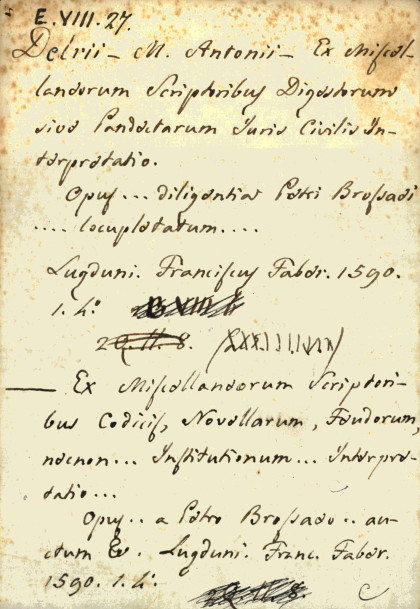 E.VIII.27.
Delrii - M. Antonii - Ex Miscel-
laneorum Scriptoribus Digestorum
sive Pandectarum Iuris Civilis In-
terpretatio.
Opus... diligentia Petri Brossaei
.... locupletatum....
Lugduni. Franciscus Faber. 1590.
1. 4.º
— Ex Miscellaneorum Scriptori-
bus Codicis, Novellarum, Feudorum,
necnon... Institutionum... Interpre-
tatio...
Opus.. a Petro Brossaeo.. au-
ctum &. Lugduni. Franc. Faber.
1590. 1. 4.º